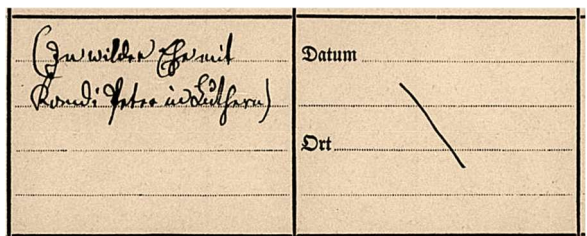 (In wilder Ehe mit
Kandi Peter in Luthern)
Datum
Ort